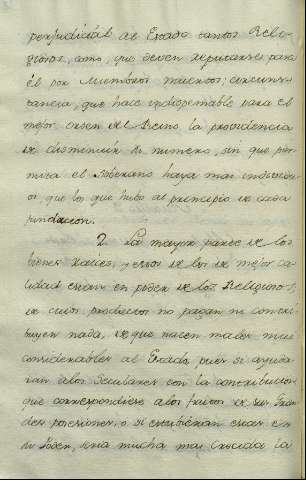 perjudicial al Estado tantos Reli-
giosos, como, que deven reputarse para
él por miembros muertos; circuns-
tancia, que hace indispensable para el
mejor orden del Reino la providencia
de disminuir su numero, sin que per-
mita el Soberano haya mas individu-
os que los que hubo al principio de cada
fundacion.
2. La mayor parte de los
bienes raices, y esos de los de mejor ca-
lidad estan en poder de los Religiosos,
de cuios productos no pagan ni contri-
buyen nada, de que nacen males mui
considerables al Estado pues si ayuda-
ran a los Seculares con la contribucion
que correspondiese a los frutos de sus gran-
des posesiones, o si estubieran estas en
su Poder, seria mucha mas crecida la